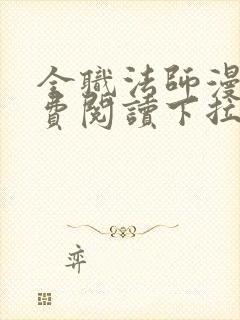 全職法師漫
費閱讀下拉
弈